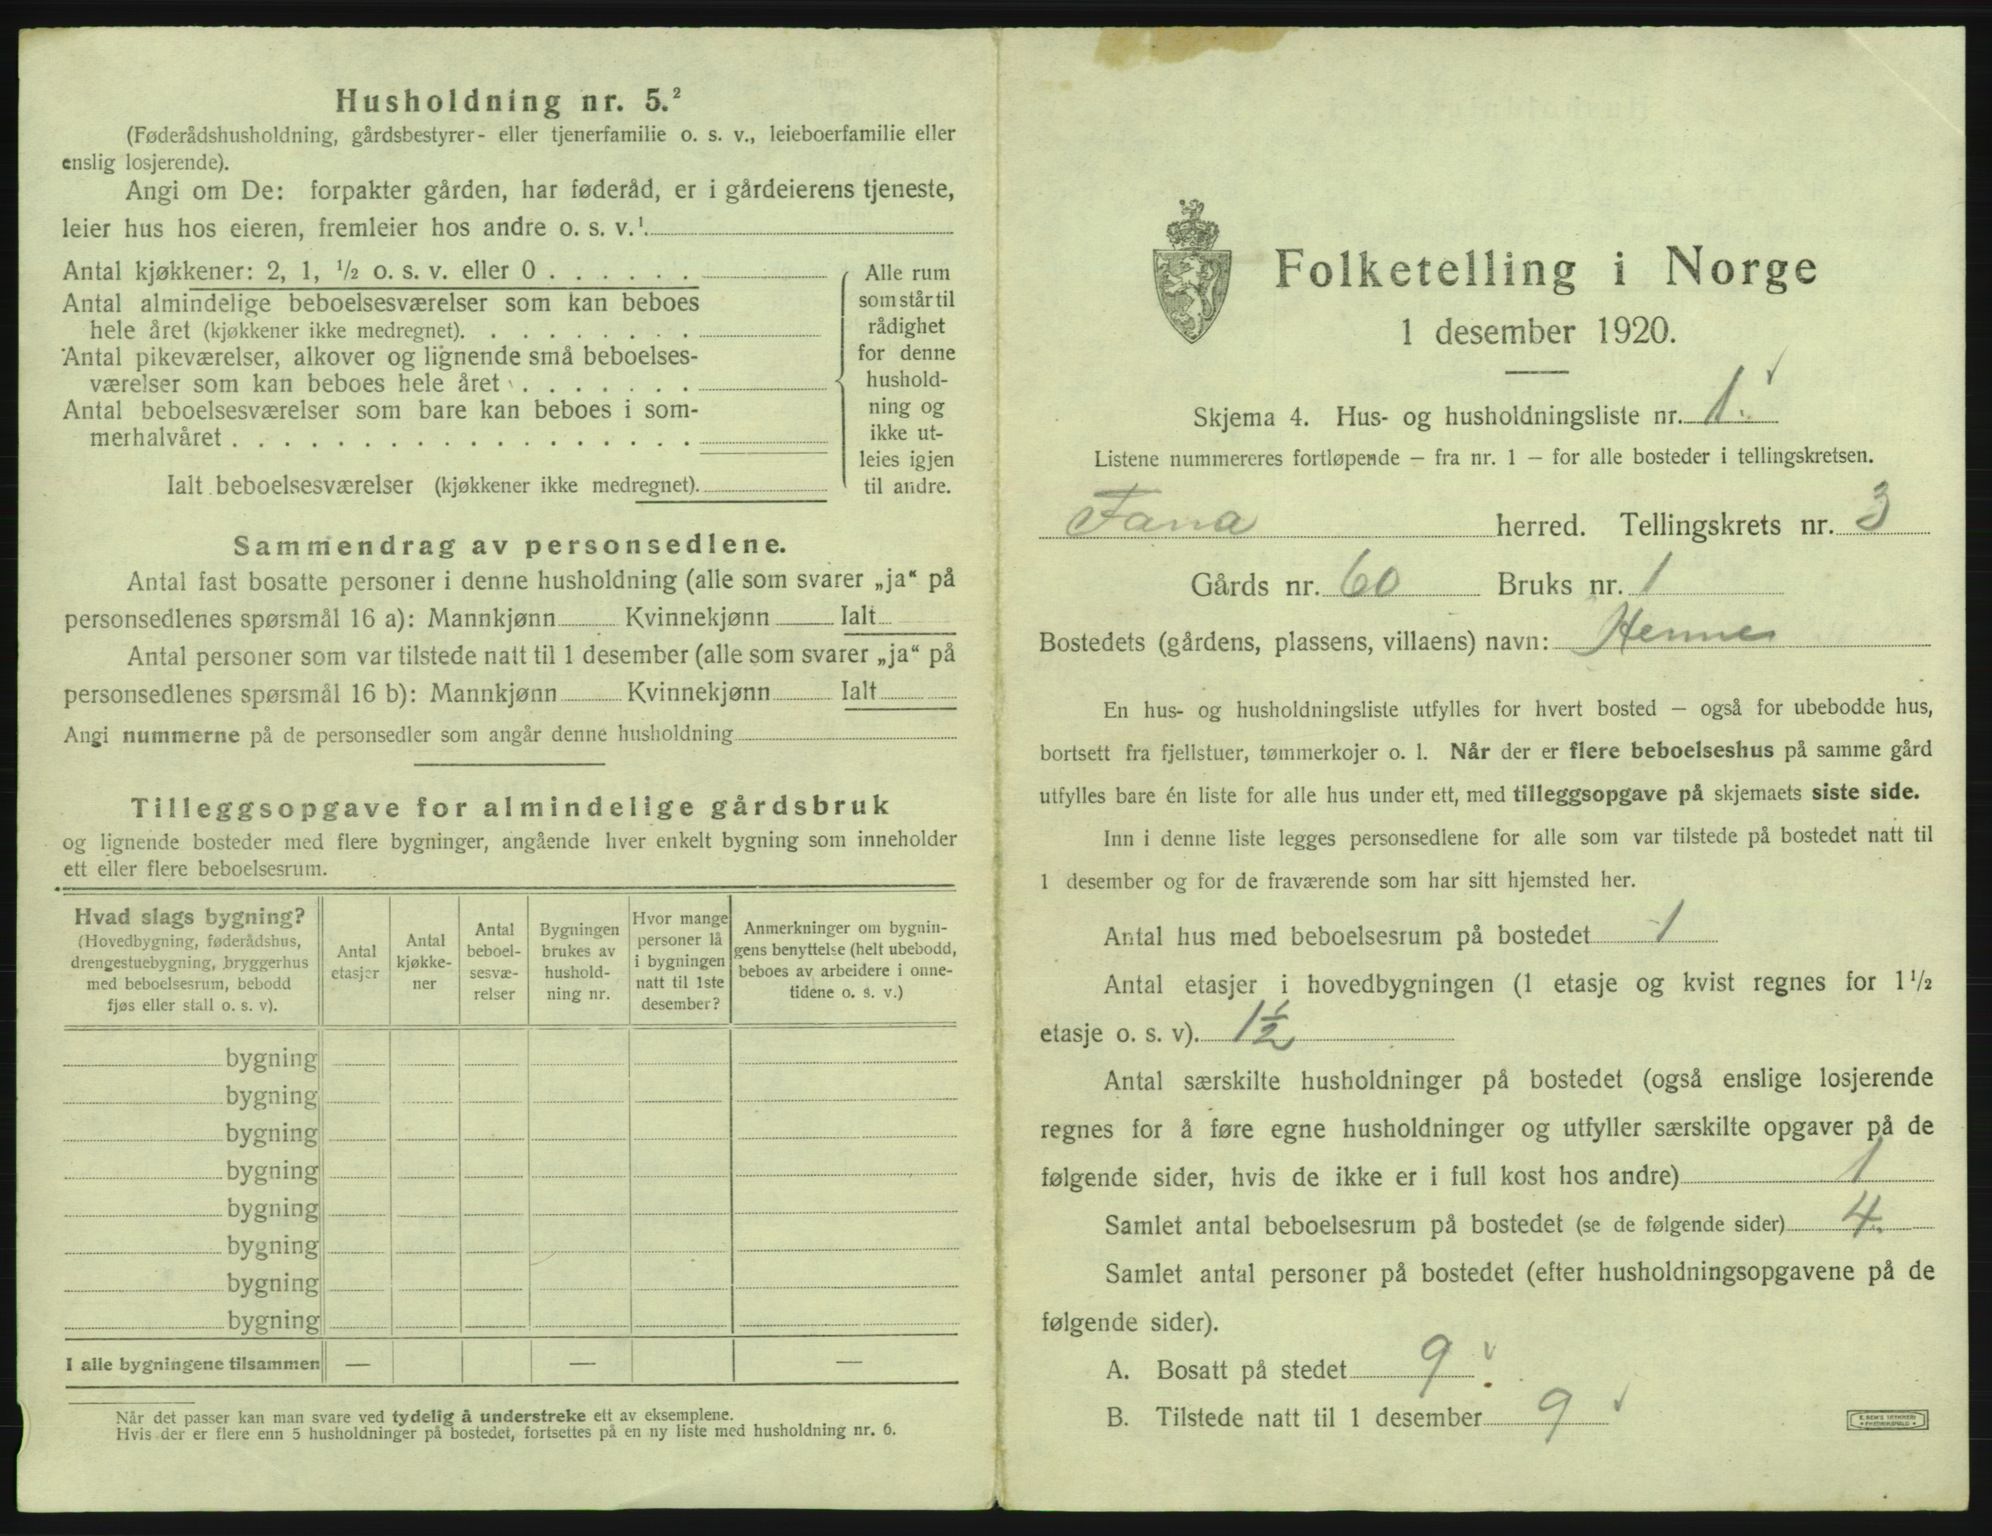 Husholdning nr. 5.²
(Føderådshusholdning, gårdsbestyrer- eller tjenerfamilie o. s. v., leieboerfamilie eller
enslig losjerende).
Angi om De: forpakter gården, har føderåd, er i gårdeierens tjeneste,
leier hus hos eieren, fremleier hos andre o. s. v.¹
Antal kjøkkener: 2, 1, ½ o. s. v. eller 0 . . . . . .
Antal almindelige beboelsesværelser som kan beboes
hele året (kjøkkener ikke medregnet). . . . . . . .
Antal pikeværelser, alkover og lignende små beboelses-
værelser som kan beboes hele året . . . . . . .
Antal beboelsesværelser som bare kan beboes i som-
merhalvåret . . . . . . . . . . . . . . . . . .
Ialt beboelsesværelser (kjøkkener ikke medregnet).
Alle rum
som står til
rådighet
for denne
hushold-
ning og
ikke ut-
leies igjen
til andre.
Sammendrag av personsedlene.
Antal fast bosatte personer i denne husholdning (alle som svarer „ja“ på
personsedlenes spørsmål 16 a): Mannkjønn Kvinnekjønn Ialt
Antal personer som var tilstede natt til 1 desember (alle som svarer „ja“ på
personsedlenes spørsmål 16 b): Mannkjønn Kvinnekjønn Ialt
Angi nummerne på de personsedler som angår denne husholdning
Tilleggsopgave for almindelige gårdsbruk
og lignende bosteder med flere bygninger, angående hver enkelt bygning som inneholder
ett eller flere beboelsesrum.
Hvad slags bygning?
(Hovedbygning, føderådshus,
drengestuebygning, bryggerhus
med beboelsesrum, bebodd
fjøs eller stall o. s. v).
Antal
etasjer
Antal
kjøkke-
ner
Antal
beboel-
sesvæ-
relser
Bygningen
brukes av
hushold-
ning nr.
Hvor mange
personer lå
i bygningen
natt til 1ste
desember?
Anmerkninger om bygnin-
gens benyttelse (helt ubebodd,
beboes av arbeidere i onne-
tidene o. s. v.)
bygning
bygning
bygning
bygning
bygning
bygning
bygning
bygning
I alle bygningene tilsammen — — —
Når det passer kan man svare ved tydelig å understreke ett av eksemplene.
Hvis der er flere enn 5 husholdninger på bostedet, fortsettes på en ny liste med husholdning nr. 6.
Folketelling i Norge
1 desember 1920.
Skjema 4. Hus- og husholdningsliste nr. 1.
Listene nummereres fortløpende — fra nr. 1 — for alle bosteder i tellingskretsen.
Fana herred. Tellingskrets nr. 3
Gårds nr. 60 Bruks nr. 1
Bostedets (gårdens, plassens, villaens) navn:
En hus- og husholdningsliste utfylles for hvert bosted — også for ubebodde hus,
bortsett fra fjellstuer, tømmerkojer o. l. Når der er flere beboelseshus på samme gård
utfylles bare én liste for alle hus under ett, med tilleggsopgave på skjemaets siste side.
Inn i denne liste legges personsedlene for alle som var tilstede på bostedet natt til
1 desember og for de fraværende som har sitt hjemsted her.
Antal hus med beboelsesrum på bostedet 1
Antal etasjer i hovedbygningen (1 etasje og kvist regnes for 1½
etasje o. s. v). 1½
Antal særskilte husholdninger på bostedet (også enslige losjerende
regnes for å føre egne husholdninger og utfyller særskilte opgaver på de
følgende sider, hvis de ikke er i full kost hos andre) 1
Samlet antal beboelsesrum på bostedet (se de følgende sider) 4.
Samlet antal personer på bostedet (efter husholdningsopgavene på de
følgende sider).
A. Bosatt på stedet 9
B. Tilstede natt til 1 desember 9